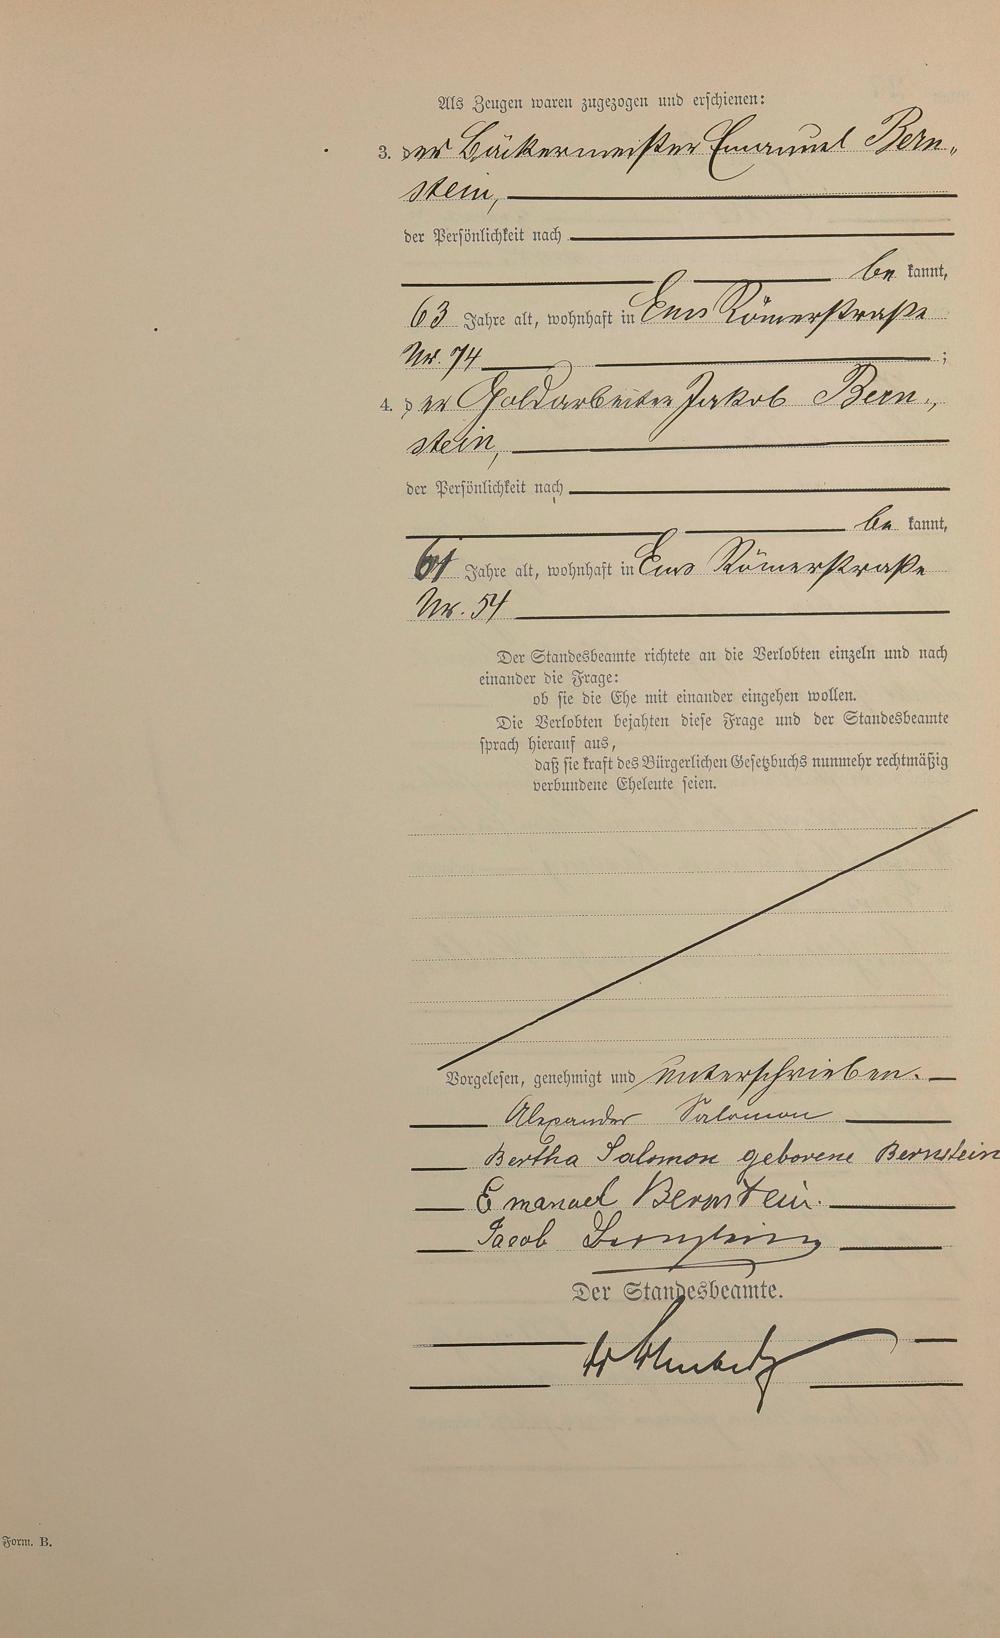 Als Zeugen waren zugezogen und erschienen:
3. der Bäckermeister Emanuel Bern„
stein,
der Persönlichkeit nach
be kannt,
63 Jahre alt, wohnhaft in Ems Römerstraße
Nr. 74 ;
4. der Goldarbeiter Jakob Bern„
stein,
der Persönlichkeit nach
be kannt,
61 Jahre alt, wohnhaft in Ems Römerstraße
Nr. 54
Der Standesbeamte richtete an die Verlobten einzeln und nach
einander die Frage:
ob sie die Ehe mit einander eingehen wollen.
Die Verlobten bejahten diese Frage und der Standesbeamte
sprach hierauf aus,
daß sie kraft des Bürgerlichen Gesetzbuchs nunmehr rechtmäßig
verbundene Eheleute seien.
Vorgelesen, genehmigt und unterschrieben.
Alexander Salomon
Bertha Salomon geborene Bernstein
Emanuel Bernstein.
Jacob Bernstein
Der Standesbeamte.
Form. B.